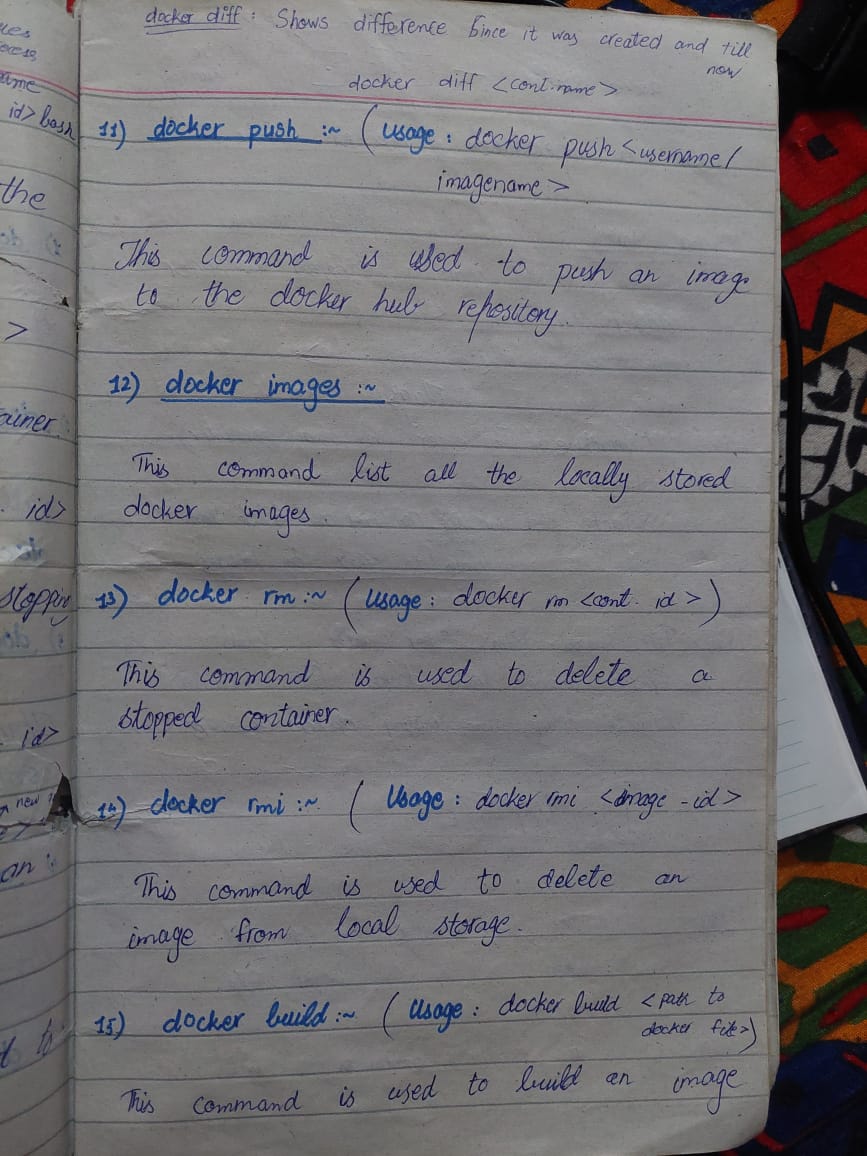 docker diff : Shows difference since it was created and till
now
docker diff <cont.name>
11) docker push :~ ( Usage : docker push <username/
imagename >
This command is used to push an image
to the docker hub repository.
12) docker images :~
This command list all the locally stored
docker images.
13) docker rm :~ ( Usage : docker rm <cont. id > )
This command is used to delete a
stopped container.
14) docker rmi :~ ( Usage : docker rmi <image -id>
This command is used to delete an
image from local storage.
15) docker build :~ ( Usage : docker build <path to
docker file>)
This command is used to build an image
id> bash
the
>
id>
stopping
id>
new
an